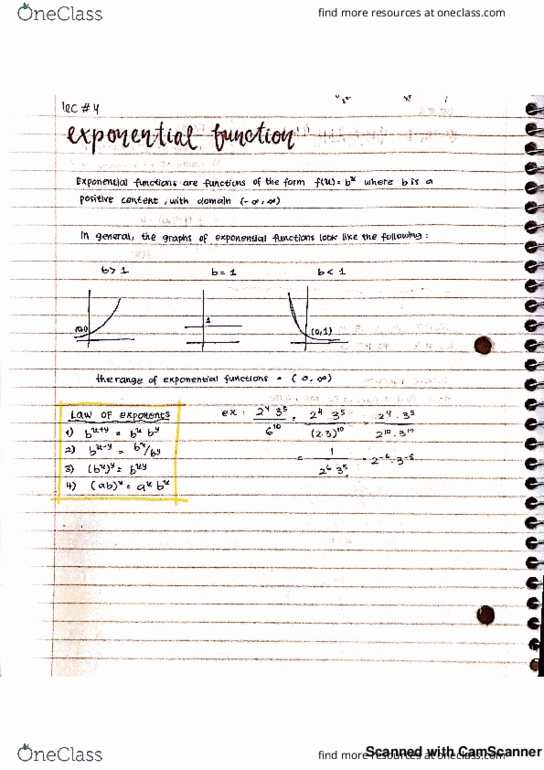 OneClass find more resources at oneclass.com
lec #4
exponential function
Exponential functions are functions of the form f(x) = b^x where b is a
positive content, with domain (-∞, ∞)
In general, the graphs of exponential functions look like the following:
b > 1 b = 1 b < 1
1
(0,1)
the range of exponential functions = (0, ∞)
Law of exponents
1) b^{x+y} = b^x b^y
2) b^{x-y} = b^x/b^y
3) (b^x)^y = b^{xy}
4) (ab)^x = a^x b^x
ex: 2^4 3^5 / 6^10 = 2^4 3^5 / (2·3)^10 = 2^4 · 3^5 / 2^10 · 3^10
= 1 / 2^6 3^5 = 2^-6 · 3^-5
OneClass find more resources at oneclass.com
Scanned with CamScanner